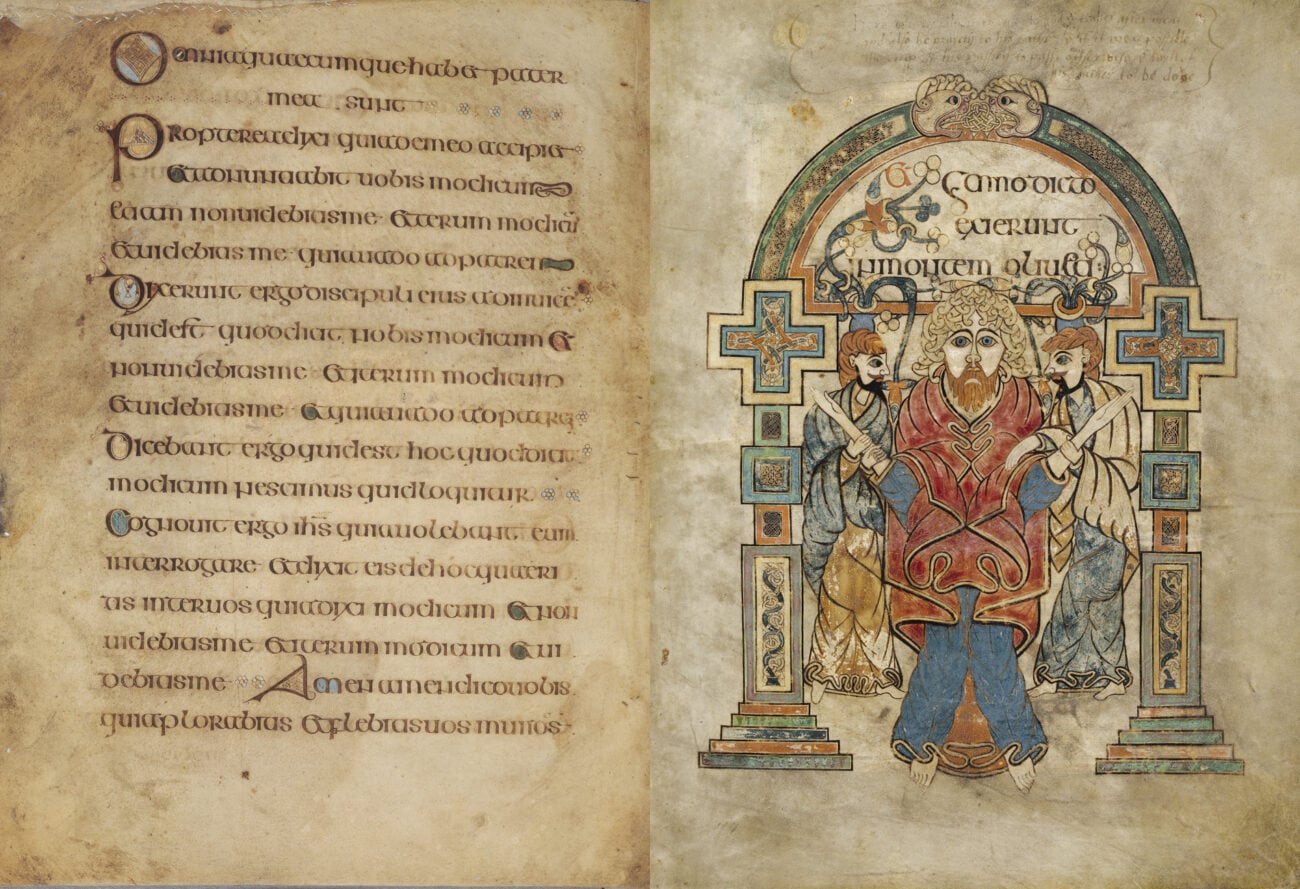 Omnia quaecumque habet pater
mea sunt
Propterea dixi quia de meo accipiet
et adnuntiabit uobis modicum
iam non uidebitis me et iterum modicū
et uidebitis me quia uado ad patrem
Dixerunt ergo discipuli eius ad inuicē
quid est quod dicit nobis modicum et
non uidebitis me et iterum modicum
et uidebitis me et quia uado ad patrē
Dicebant ergo quid est hoc quod dicit
modicum nescimus quid loquitur
Cognouit ergo ihs quia uolebant eum
interrogare et dixit eis de hoc quaeri
tis inter uos quia dixi modicum et non
uidebitis me et iterum modicum et ui
debitis me Amen amen dico uobis
quia plorabitis et flebitis uos
to his
to be done
Et ymno dicto
exierunt
in montem oliueti